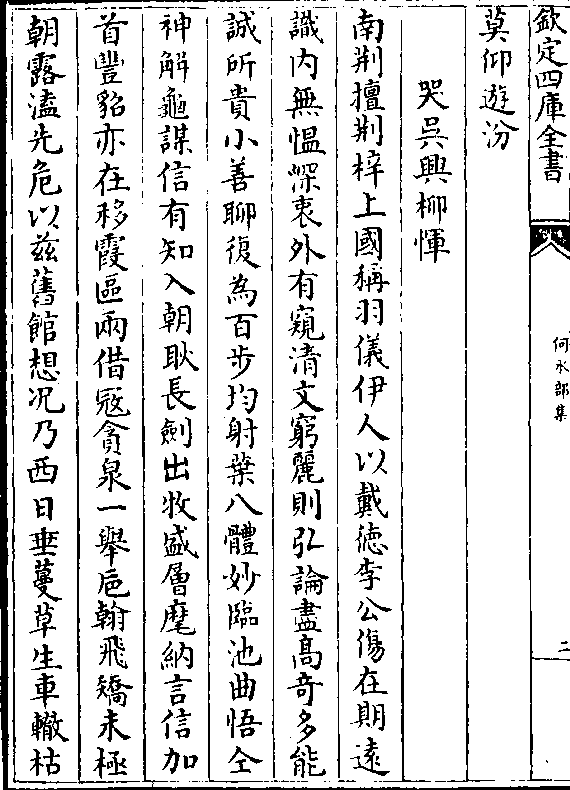 欽定四庫全書
何水部集
二
莫仰遊汾
哭吳興柳惲
南荆擅荆梓上國稱羽儀伊人以戴徳李公傷在期遠
識内無愠深衷外有窺清文窮麗則弘論盡髙奇多能
誠所貴小善聊復為百步均射葉八體妙臨池曲悟仝
神解龜謀信有知入朝耿長劒出牧盛層麾納言信加
首豐貂亦在移霞區兩借冦貪泉一舉巵翰飛矯未極
朝露溘先危以兹舊館想况乃西日垂蔓草生車轍枯